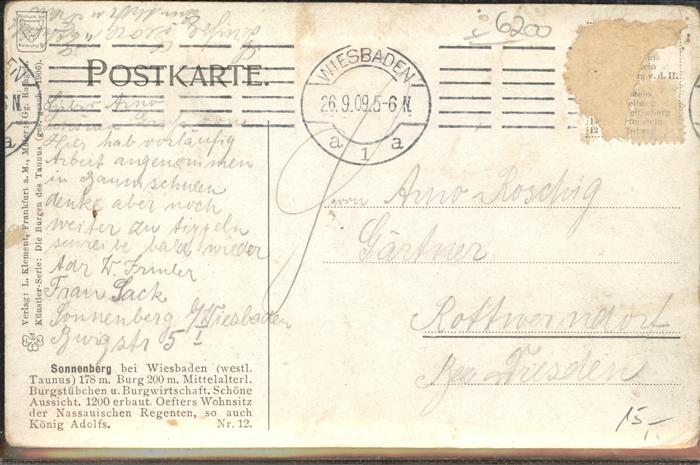 6200
POSTKARTE.
WIESBADEN
26.9.09.5-6N.
a 1 a
Lieber Arno
Hier hab vorläufig
Arbeit angenommen
in Baumschulen
denke aber noch
weiter zu tippeln
schreibe bald wieder
Adr W.
Frau Sack
Sonnenberg b/Wiesbaden
Burgstr 5 I
Herrn Arno Roschig
Gärtner
Rottwerndorf
Bez Dresden
15,-
Verlag: L. Klement, Frankfurt a. M., Maler: Gg.
Künstler-Serie: Die Burgen des Taunus (ges. gesch. 1906).
Sonnenberg bei Wiesbaden (westl.
Taunus) 178 m. Burg 200 m. Mittelalterl.
Burgstübchen u. Burgwirtschaft. Schöne
Aussicht. 1200 erbaut. Oefters Wohnsitz
der Nassauischen Regenten, so auch
König Adolfs. Nr. 12.